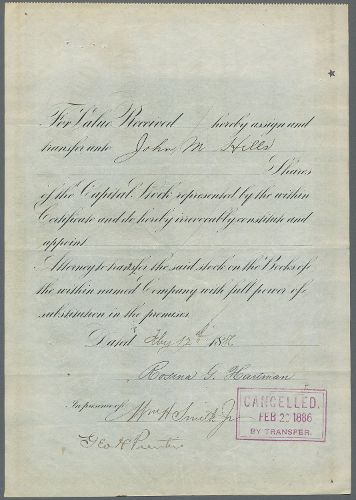 For Value Received I hereby assign and
transfer unto John M Hills
Shares
of the Capital Stock represented by the within
Certificate and do hereby irrevocably constitute and
appoint
Attorney to transfer the said stock on the Books of
the within named Company with full power of
substitution in the premises
Dated Feby 12th 188
Rosena G. Hartman
In presence of
Wm H Smith Jr
Geo H
CANCELLED.
FEB 20 1886
BY TRANSFER.